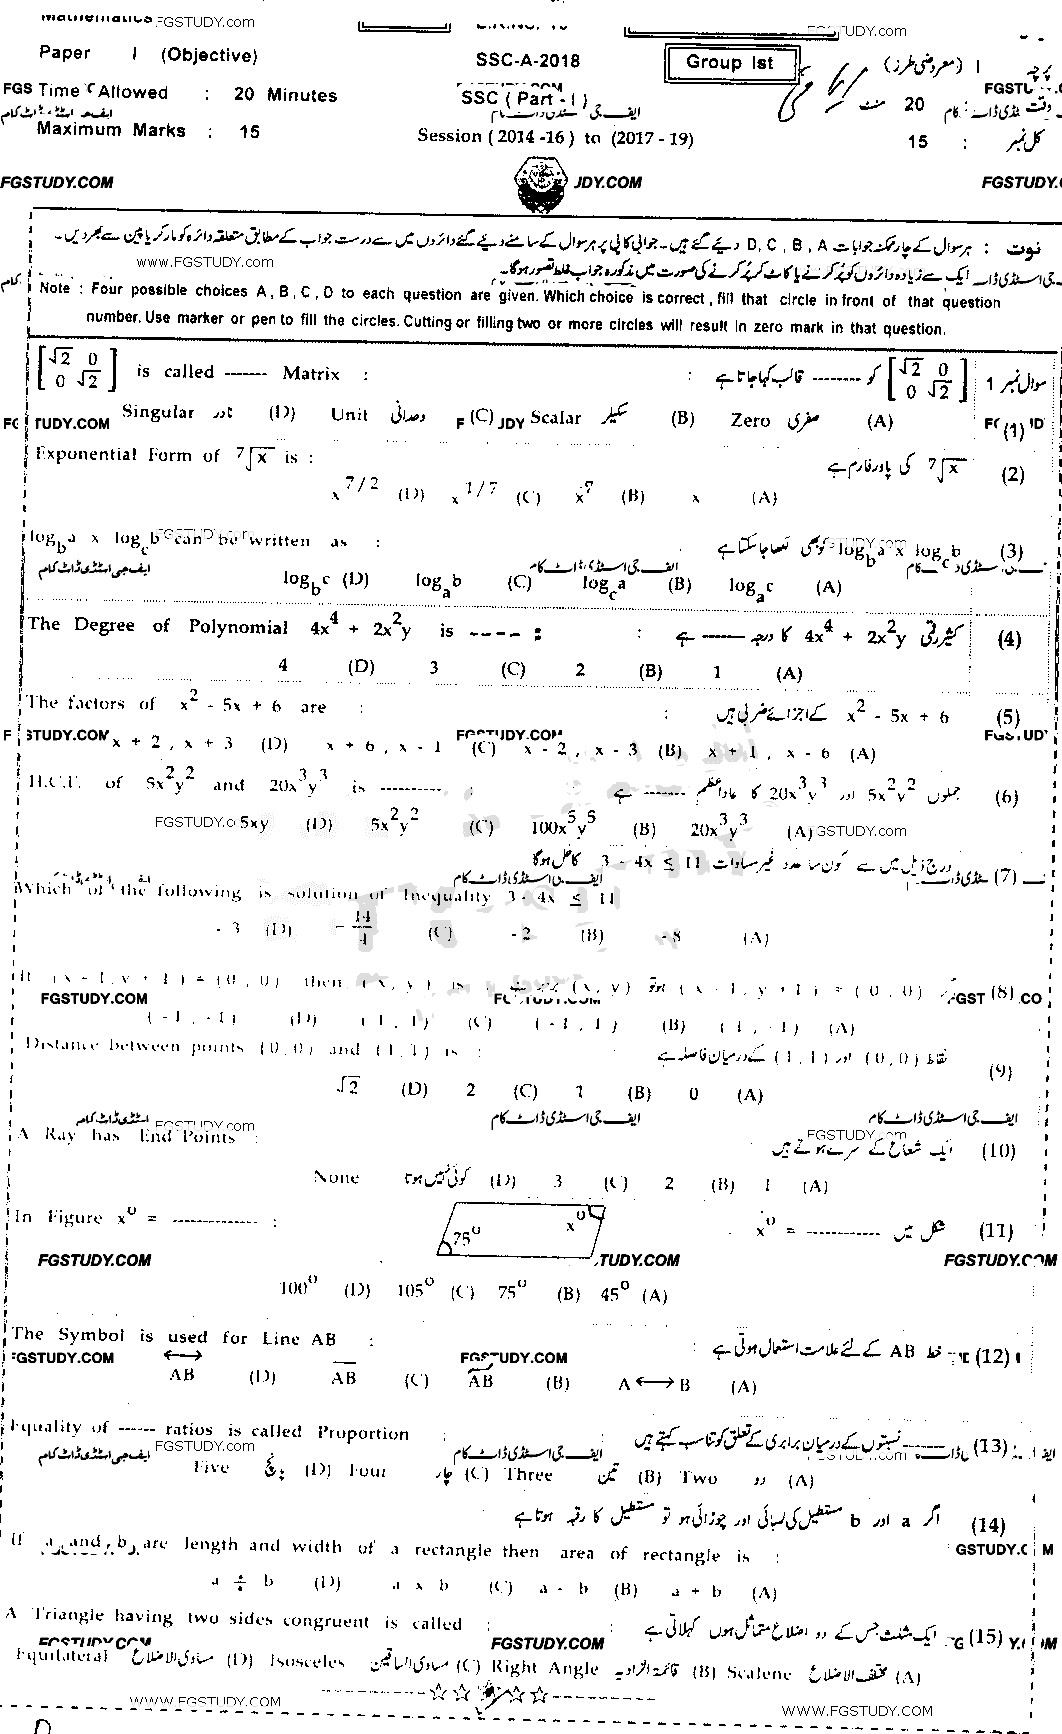 Mathematics FGSTUDY.com
FGSTUDY.com
Paper I (Objective) SSC-A-2018 Group Ist پرچہ I (معروضی طرز)
FGS Time Allowed : 20 Minutes SSC (Part - I) وقت : 20 منٹ
ایف جی اسٹڈی ڈاٹ کام
Maximum Marks : 15 Session (2014 -16) to (2017 - 19) کل نمبر : 15
FGSTUDY.COM JDY.COM FGSTUDY.
نوٹ : ہر سوال کے چار ممکنہ جوابات D, C, B, A دیئے گئے ہیں۔ جوابی کاپی پر ہر سوال کے سامنے دیئے گئے دائروں میں سے درست جواب کے مطابق متعلقہ دائرہ کو مارکر یا پین سے بھر دیں۔
www.FGSTUDY.com
ایک سے زیادہ دائروں کو پُر کرنے یا کاٹ کر پُر کرنے کی صورت میں مذکورہ جواب غلط تصور ہوگا۔
Note : Four possible choices A, B, C, D to each question are given. Which choice is correct, fill that circle in front of that question
number. Use marker or pen to fill the circles. Cutting or filling two or more circles will result in zero mark in that question.
[√2 0 / 0 √2] is called ------ Matrix : : [√2 0 / 0 √2] کو -------- قالب کہا جاتا ہے سوال نمبر 1
Singular نادر (D) Unit وحدانی (C) Scalar سکیلر (B) Zero صفری (A) (1)
Exponential Form of ⁷√x is : ⁷√x کی پاور فارم ہے (2)
x^7/2 (D) x^1/7 (C) x^7 (B) x (A)
log_b a x log_c b can be written as : log_b a x log_c b کو بھی لکھا جا سکتا ہے (3)
log_b c (D) log_a b (C) log_c a (B) log_a c (A)
The Degree of Polynomial 4x⁴ + 2x²y is ---- : : کثیر رقمی 4x⁴ + 2x²y کا درجہ ------ ہے (4)
4 (D) 3 (C) 2 (B) 1 (A)
The factors of x² - 5x + 6 are : : x² - 5x + 6 کے اجزائے ضربی ہیں (5)
x + 2 , x + 3 (D) x + 6 , x - 1 (C) x - 2 , x - 3 (B) x + 1 , x - 6 (A)
H.C.F. of 5x²y² and 20x³y³ is ---------- : جملوں 5x²y² اور 20x³y³ کا عاد اعظم ------ ہے (6)
5xy (D) 5x²y² (C) 100x⁵y⁵ (B) 20x³y³ (A)
درج ذیل میں سے کون سا عدد غیر مساوات 3 - 4x ≤ 11 کا حل ہوگا (7)
Which of the following is solution of Inequality 3 - 4x ≤ 11
- 3 (D) - 14/4 (C) - 2 (B) - 8 (A)
If (x - 1, y + 1) = (0, 0) then (x, y) is : (x - 1, y + 1) = (0, 0) ہو تو (x, y) (8)
(-1, -1) (D) (1, 1) (C) (-1, 1) (B) (1, -1) (A)
Distance between points (0,0) and (1,1) is : نقاط (0,0) اور (1,1) کے درمیان فاصلہ ہے (9)
√2 (D) 2 (C) 1 (B) 0 (A)
A Ray has End Points : ایک شعاع کے سرے ہوتے ہیں (10)
None کوئی نہیں ہوتا (D) 3 (C) 2 (B) 1 (A)
In Figure x⁰ = ------------- : 75⁰ x⁰ شکل میں x⁰ = ----------- (11)
FGSTUDY.COM .TUDY.COM FGSTUDY.COM
100⁰ (D) 105⁰ (C) 75⁰ (B) 45⁰ (A)
The Symbol is used for Line AB : : خط AB کے لئے علامت استعمال ہوتی ہے (12)
FGSTUDY.COM FGSTUDY.COM
↔AB (D) AB (C) AB (B) A ↔ B (A)
Equality of ------ ratios is called Proportion : ------- نسبتوں کے درمیان برابری کے تعلق کو تناسب کہتے ہیں (13)
Five پانچ (D) Four چار (C) Three تین (B) Two دو (A)
اگر a اور b مستطیل کی لمبائی اور چوڑائی ہو تو مستطیل کا رقبہ ہوتا ہے (14)
If a and b are length and width of a rectangle then area of rectangle is :
a ÷ b (D) a x b (C) a - b (B) a + b (A)
A Triangle having two sides congruent is called : : ایک مثلث جس کے دو اضلاع متماثل ہوں کہلاتی ہے (15)
FGSTUDY.COM FGSTUDY.COM
Equilateral مساوی الاضلاع (D) Isosceles مساوی الساقین (C) Right Angle قائمۃ الزاویہ (B) Scalene مختلف الاضلاع (A)
WWW.FGSTUDY.COM
WWW.FGSTUDY.COM